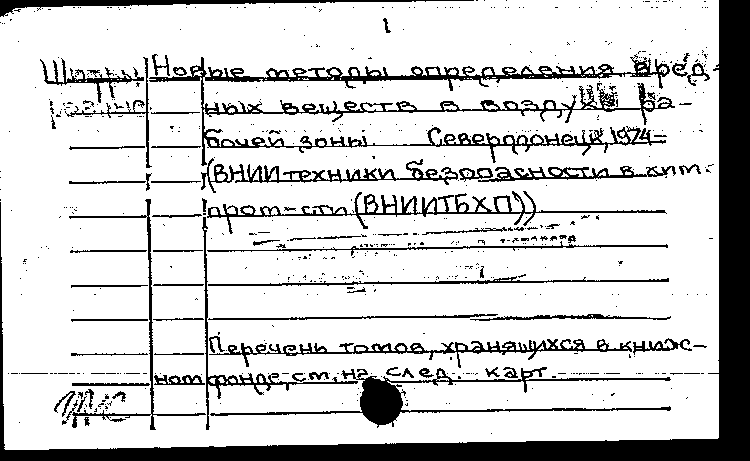 1
Шифры Новые методы определения вред-
разные ных веществ в воздухе ра-
бочей зоны. Северодонецк, 1974-
(ВНИИтехники безопасности в хим.
пром-сти (ВНИИТБХП))
Перечень томов, хранящихся в книж-
ном фонде, см. на след. карт.